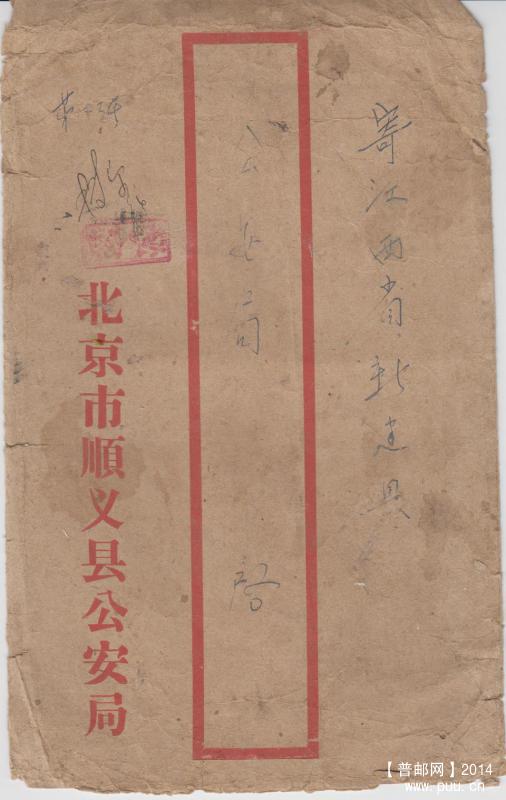 寄江西省新建县
公安局 启
北京市順义县公安局
【普邮网】2014
www.puu.cn